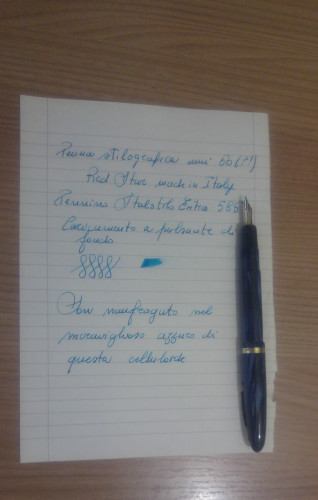 Penna stilografica anni 50 (?)
Red Star made in Italy
Pennino Italstilo Extra 585
Caricamento a pulsante di
fondo
Son naufragato nel
meraviglioso azzurro di
questa celluloide